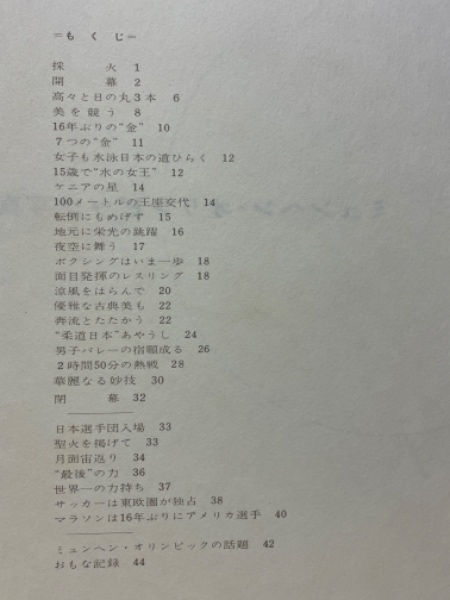 =もくじ=
採火 1
開幕 2
高々と日の丸3本 6
美を競う 8
16年ぶりの“金” 10
7つの“金” 11
女子も水泳日本の道ひらく 12
15歳で“水の女王” 12
ケニアの星 14
100メートルの王座交代 14
転倒にもめげず 15
地元に栄光の跳躍 16
夜空に舞う 17
ボクシングはいま一歩 18
面目発揮のレスリング 18
涼風をはらんで 20
優雅な古典美も 22
奔流とたたかう 22
“柔道日本”あやうし 24
男子バレーの宿願成る 26
2時間50分の熱戦 28
華麗なる妙技 30
閉幕 32
日本選手団入場 33
聖火を掲げて 33
月面宙返り 34
“最後”の力 36
世界一の力持ち 37
サッカーは東欧圏が独占 38
マラソンは16年ぶりにアメリカ選手 40
ミュンヘン・オリンピックの話題 42
おもな記録 44